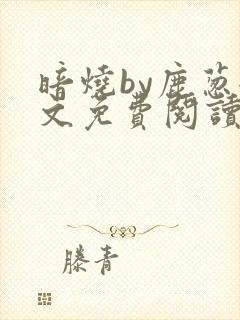 暗燒by鹿蔥
文免費閱讀
滕青